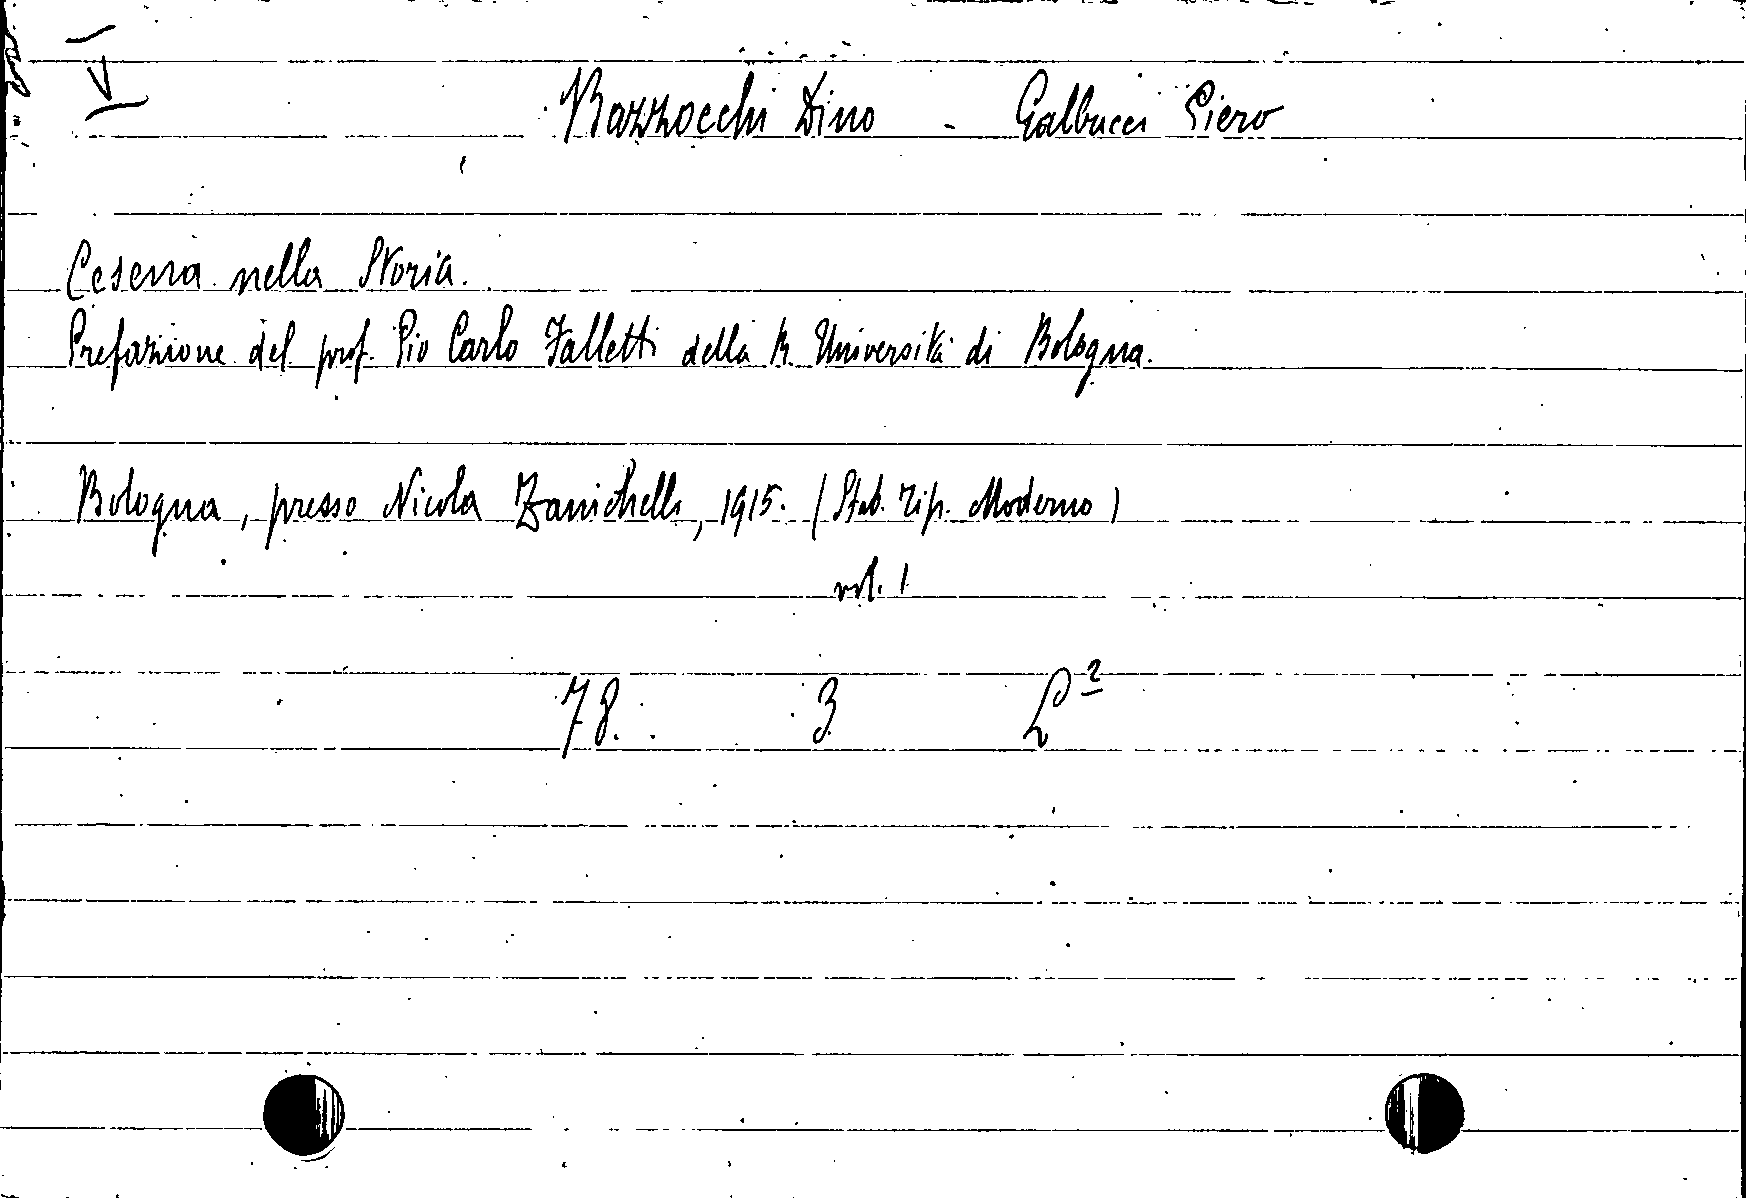 V
Bazzocchi Dino - Galbucci Piero
Cesena nella Storia.
Prefazione del prof. Pio Carlo Falletti della R. Università di Bologna.
Bologna, presso Nicola Zanichelli, 1915. (Stab. Tip. Moderno)
vol. 1
78. 3 L²